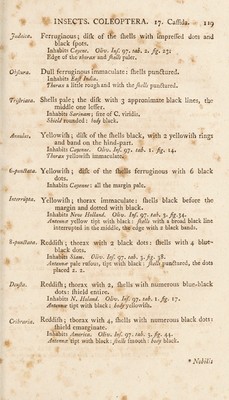 INSECTS. COLEOPTERA. 17. Cassida. 119
Judaica. Ferruginous; disk of the shells with impressed dots and
black spots.
Inhabits Cayenne. Oliv. Ins. 97. tab. 2. fig. 25;
Edge of the thorax and shells paler.
Obscura. Dull ferruginous immaculate: shells punctured.
Inhabits East India.
Thorax a little rough and with the shells punctured.
Tristriata. Shells pale; the disk with 3 approximate black lines, the
middle one lesser.
Inhabits Surinam; size of C. viridis.
Shield rounded: body black.
Annulus. Yellowish; disk of the shells black, with 2 yellowish rings
and band on the hind-part.
Inhabits Cayenne. Oliv. Ins. 97. tab. 1. fig. 14.
Thorax yellowish immaculate.
6-punctata. Yellowish; disk of the shells ferruginous with 6 black
dots.
Inhabits Cayenne: all the margin pale.
Interrupta. Yellowish; thorax immaculate: shells black before the
margin and dotted with black.
Inhabits New Holland. Oliv. Ins. 97. tab. 3. fig. 34.
Antennæ yellow tipt with black: shells with a broad black line
interrupted in the middle, the edge with 2 black bands.
8-punctata. Reddish; thorax with 2 black dots: shells with 4 blue-
black dots.
Inhabits Siam. Oliv. Ins. 97. tab. 3. fig. 38.
Antennæ pale rufous, tipt with black: shells punctured, the dots
placed 2. 2.
Deusta. Reddish; thorax with 2, shells with numerous blue-black
dots: shield entire.
Inhabits N. Holland. Oliv. Ins. 97. tab. 1. fig. 17.
Antennæ tipt with black: body yellowish.
Cribraria. Reddish; thorax with 4, shells with numerous black dots:
shield emarginate.
Inhabits America. Oliv. Ins. 97. tab. 3. fig. 44.
Antennæ tipt with black: shells smooth: body black.
* Nobilis